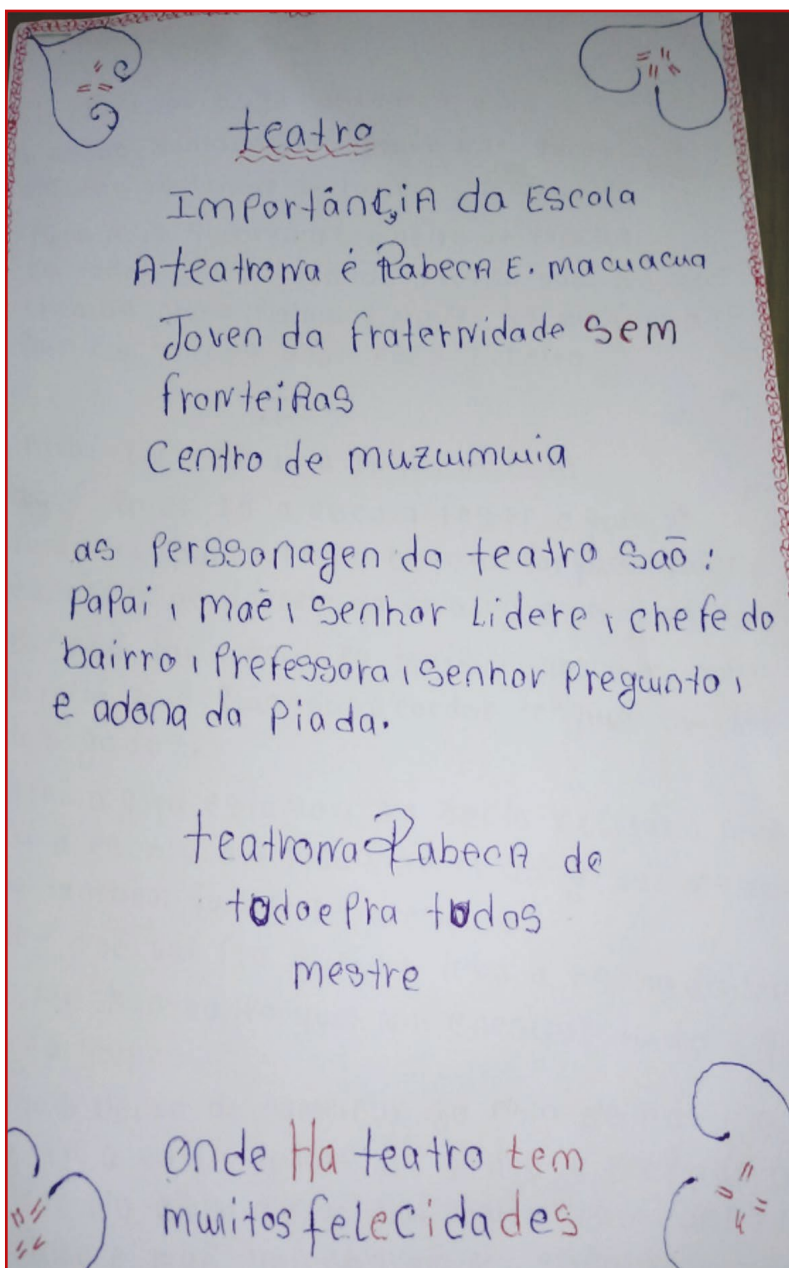 teatro
ImPortânçiA da Escola
A teatrona é RabecA E. macuacua
Joven da fraternidade sem
fronteiRas
Centro de muzumuia
as Perssonagen do teatro são:
PaPai, maẽ, Senhor Lidere, chefe do
bairro, Prefessora, Senhor Pregunto,
e adona da Piada.
teatrona RabecA de
todo e Pra todos
mestre
onde Ha teatro tem
muitos felecidades